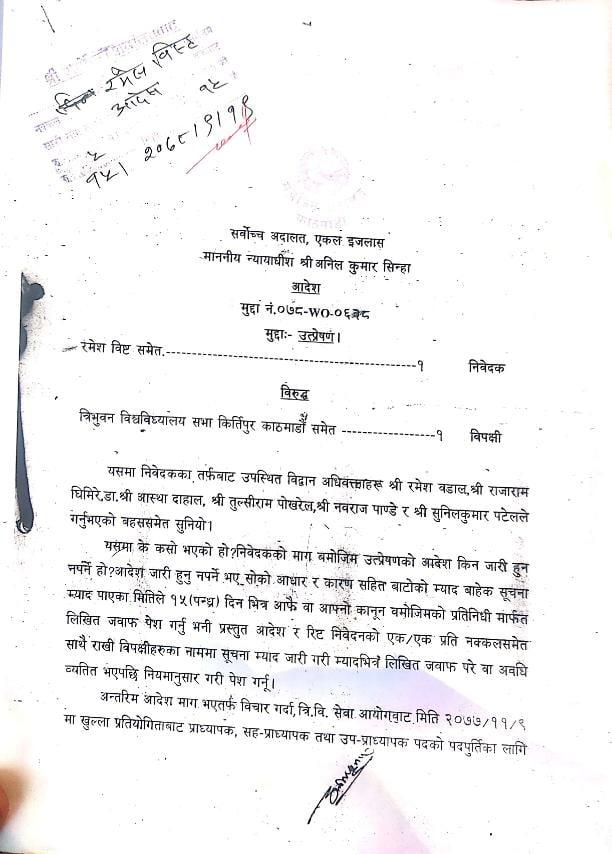 रमेश विष्ट
आदेश
२०७८।९।१९
सर्वोच्च अदालत, एकल इजलास
माननीय न्यायाधीश श्री अनिल कुमार सिन्हा
आदेश
मुद्दा नं.०७८-WO-०६२८
मुद्दाः- उत्प्रेषण।
रमेश विष्ट समेत.------------------------------------------------१ निवेदक
विरुद्ध
त्रिभुवन विश्वबिध्यालय सभा किर्तिपुर काठमाडौँ समेत -----------------१ विपक्षी
यसमा निवेदकका तर्फबाट उपस्थित विद्वान अधिवक्ताहरु श्री रमेश वडाल,श्री राजाराम
घिमिरे,डा.श्री आस्था दाहाल, श्री तुल्सीराम पोखरेल,श्री नवराज पाण्डे र श्री सुनिलकुमार पटेलले
गर्नुभएको बहससमेत सुनियो।
यसमा के कसो भएको हो?निवेदकको माग बमोजिम उत्प्रेषणको आदेश किन जारी हुन
नपर्ने हो?आदेश जारी हुनु नपर्ने भए सोको आधार र कारण सहित बाटोको म्याद बाहेक सूचना
म्याद पाएका मितिले १५(पन्ध्र) दिन भित्र आफै वा आफ्नो कानून बमोजिमको प्रतिनिधी मार्फत
लिखित जवाफ पेश गर्नु भनी प्रस्तुत आदेश र रिट निवेदनको एक/एक प्रति नक्कलसमेत
साथै राखी विपक्षीहरुका नाममा सूचना म्याद जारी गरी म्यादभित्र लिखित जवाफ परे वा अवधि
व्यतित भएपछि नियमानुसार गरी पेश गर्नू।
अन्तरिम आदेश माग भएतर्फ विचार गर्दा,त्रि.वि. सेवा आयोगबाट मिति २०७७/११/९
मा खुल्ला प्रतियोगिताबाट प्राध्यापक, सह-प्राध्यापक तथा उप-प्राध्यापक पदको पदपुर्तिका लागि